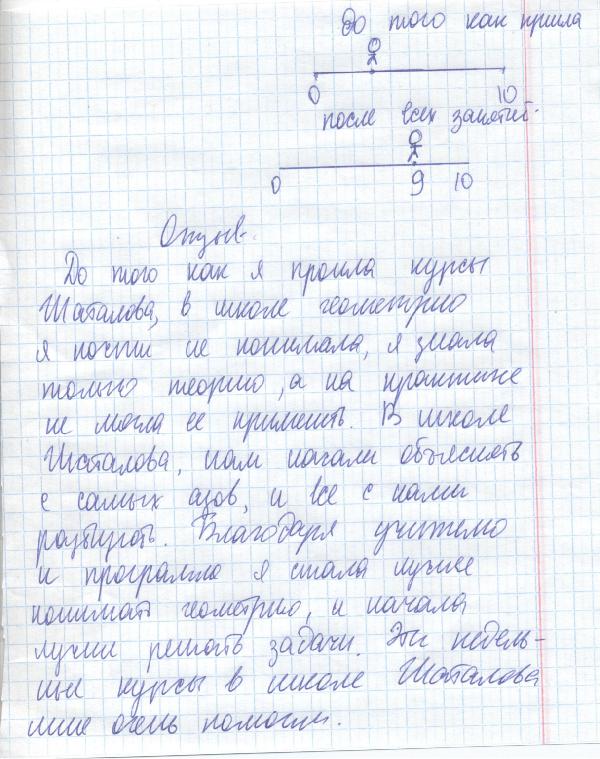 До того как пришла
0 10
после всех занятий.
0 9 10
Отзыв.
До того как я прошла курсы
Шаталова, в школе геометрию
я почти не понимала, я знала
только теорию, а на практике
не могла ее применить. В школе
Шаталова, нам начали объяснять
с самых азов, и все с нами
разбирать. Благодаря учителю
и програмно я стала лучше
понимать геометрию, и начала
лучше решать задачи. Эти недель-
ные курсы в школе Шаталова
мне очень помогли.